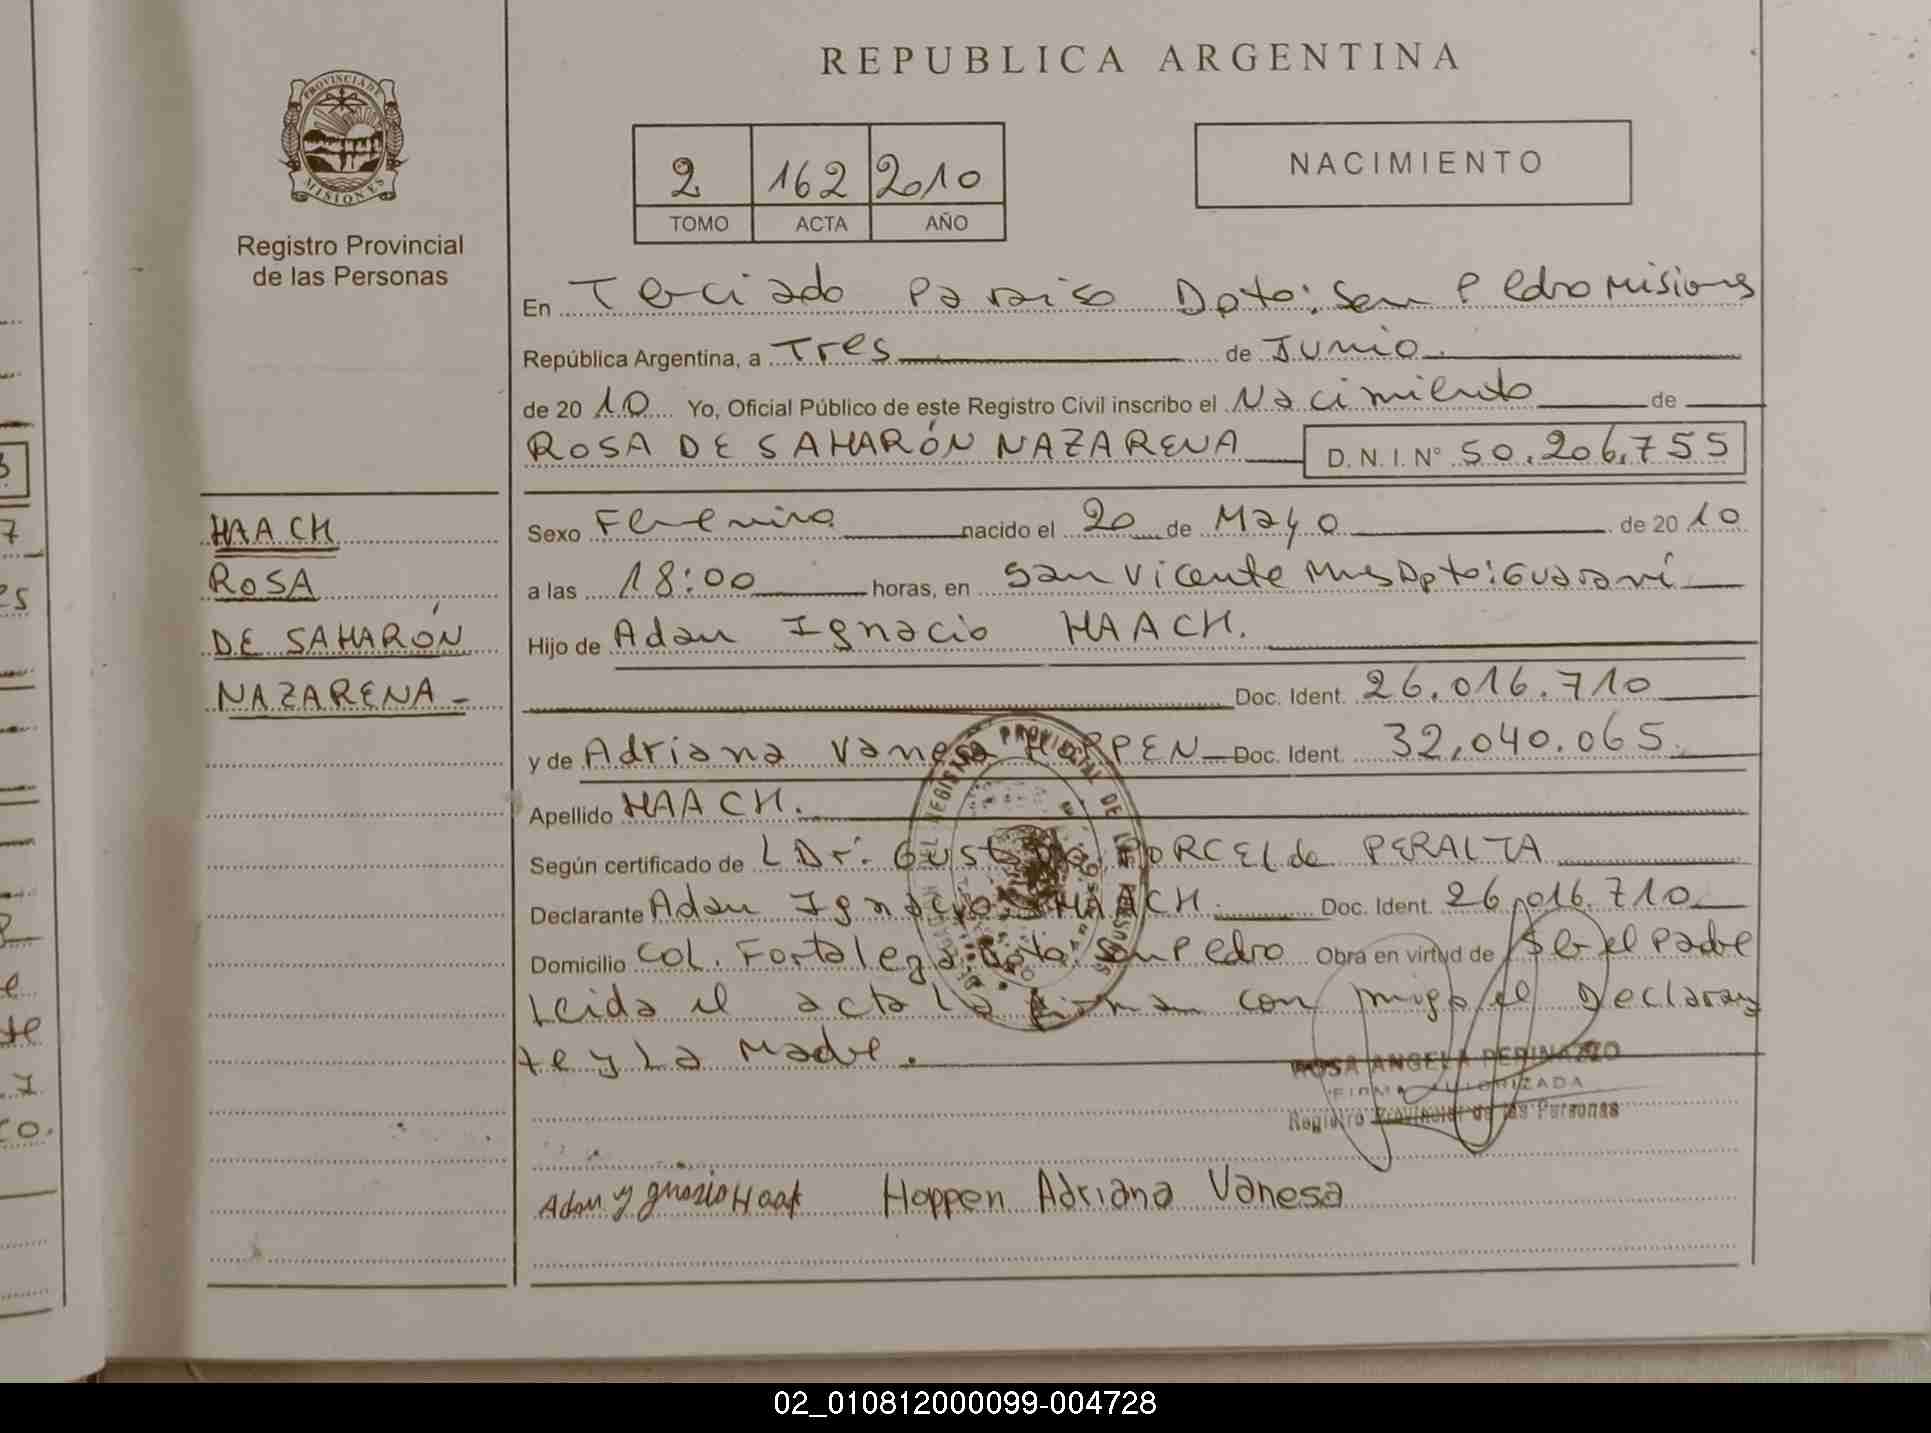 REPUBLICA ARGENTINA
PROVINCIA DE MISIONES
Registro Provincial
de las Personas
2 162 2010
TOMO ACTA AÑO
NACIMIENTO
En Terciado Paraiso Dpto: San Pedro Misiones
República Argentina, a Tres de Junio.
de 20 10 Yo, Oficial Público de este Registro Civil inscribo el Nacimiento de
ROSA DE SAHARÓN NAZARENA D. N. I. N° 50.206.755
HAACH
ROSA
DE SAHARÓN
NAZARENA-
Sexo Femenino nacido el 20 de Mayo de 20 10
a las 18:00 horas, en San Vicente Mnes Dpto: Guaraní
Hijo de Adan Ignacio HAACH.
Doc. Ident. 26.016.710
y de Adriana Vanesa HOPPEN Doc. Ident. 32.040.065.
Apellido HAACH.
Según certificado de L Dr. Gustavo PORCEL de PERALTA
Declarante Adan Ignacio HAACH. Doc. Ident. 26.016.710
Domicilio COL. Fortaleza Dpto. San Pedro Obra en virtud de Ser el Padre
Leida el acta La Firman con migo el Declaran
te y La Madre.
ROSA ANGELA PERINAZZO
FIRMA AUTORIZADA
Registro Provincial de las Personas
Adan ygnasio Haak Hoppen Adriana Vanesa
02_010812000099-004728